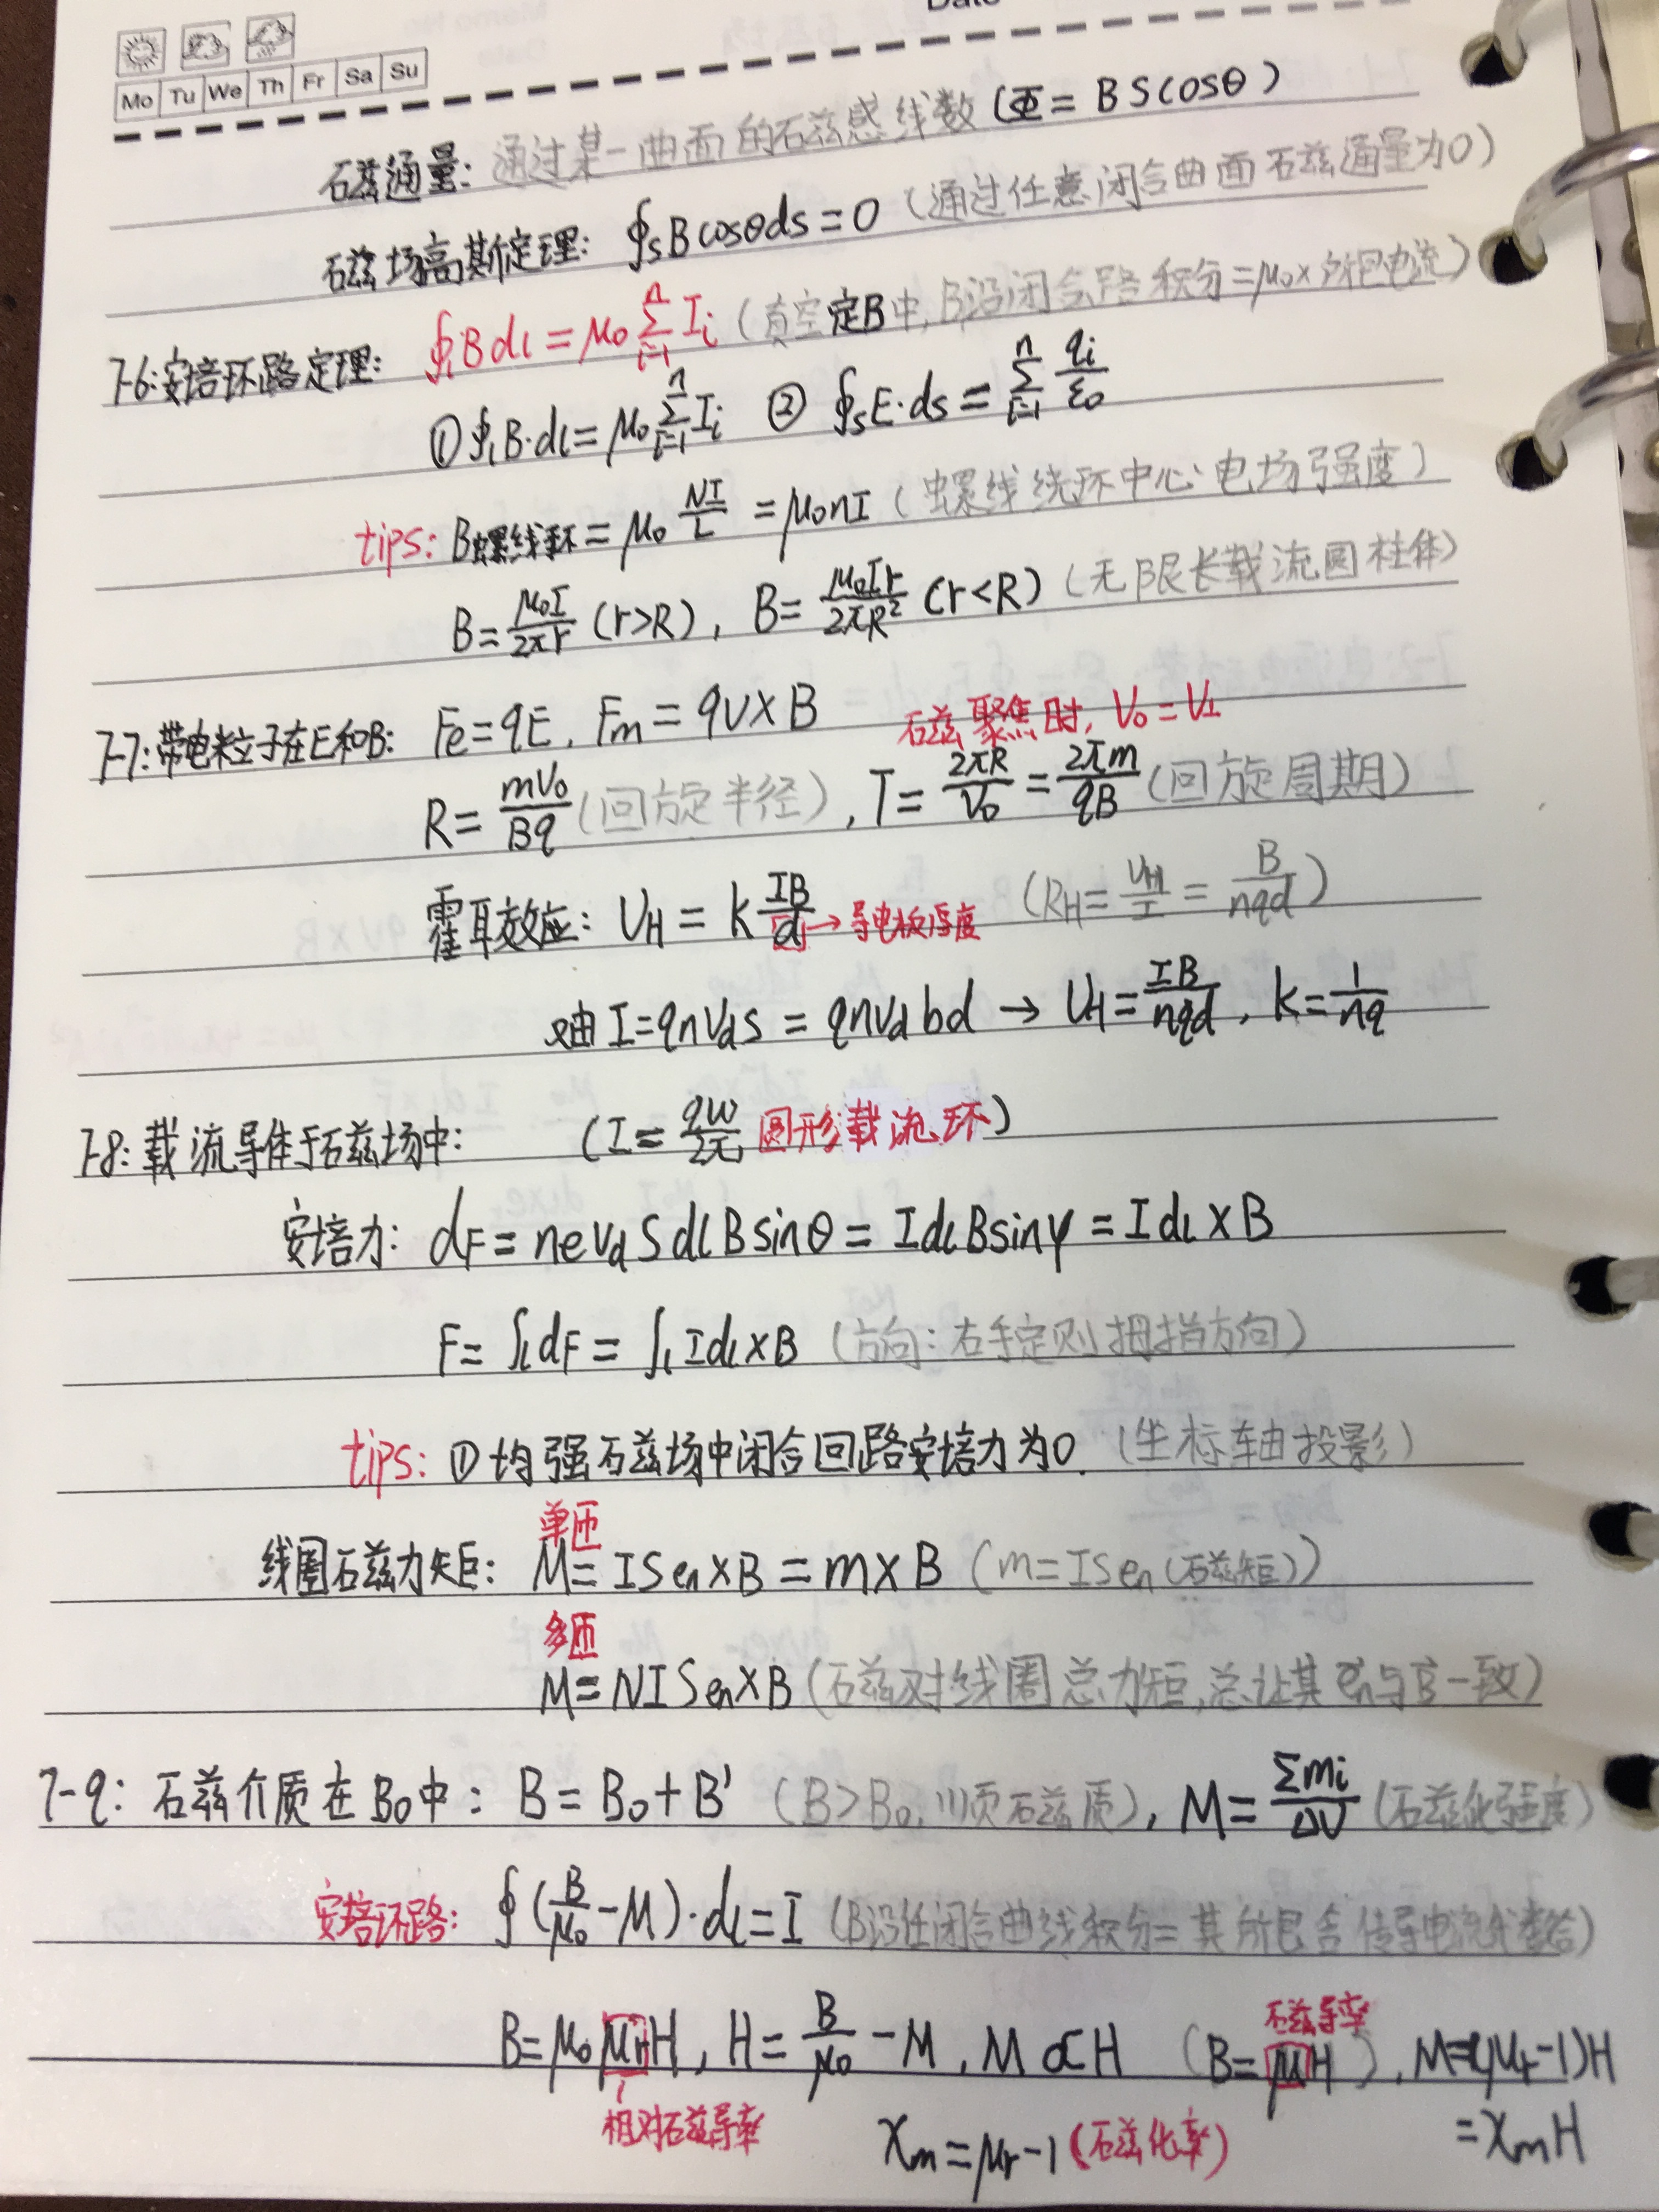 Date
Mo Tu We Th Fr Sa Su
磁通量: 通过某一曲面的磁感线数 (Φ = BScosθ)
磁场高斯定理: ∮s B cosθ ds = 0 (通过任意闭合曲面磁通量为0)
7-6: 安培环路定理: ∮l B dl = μ0 Σ(i=1→n) Ii (真空定B中, B沿闭合路积分 = μ0 × 所包电流)
① ∮l B·dl = μ0 Σ(i=1→n) Ii ② ∮s E·ds = Σ(i=1→n) qi/ε0
tips: B螺线环 = μ0 NI/L = μ0nI (螺线绕环中心电场强度)
B = μ0I/2πr (r>R), B = μ0Ir/2πR² (r<R) (无限长载流圆柱体)
7-7: 带电粒子在E和B: Fe = qE, Fm = qv×B 磁聚焦时, V0 = V⊥
R = mV0/Bq (回旋半径), T = 2πR/V0 = 2πm/qB (回旋周期)
霍耳效应: UH = k IB/d → 导电板厚度 (RH = UH/I = B/nqd)
又由 I = qnvds = qnvdbd → UH = IB/nqd, k = 1/nq
7-8: 载流导体于磁场中: (I = qω/2π 圆形载流环)
安培力: dF = nevdSdlBsinθ = IdlBsinφ = Idl×B
F = ∫l dF = ∫l Idl×B (方向: 右手定则拇指方向)
tips: ① 均强磁场中闭合回路安培力为0. (坐标轴投影)
单匝
线圈磁力矩: M = ISen×B = m×B (m = ISen (磁矩))
多匝
M = NISen×B (磁对线圈总力矩, 总让其en与B一致)
7-9: 磁介质在B0中: B = B0 + B' (B>B0, 顺磁质), M = Σmi/ΔV (磁化强度)
安培环路: ∮(B/μ0 - M)·dl = I (B沿任闭合曲线积分 = 其所包含传导电流代数合)
磁导率
B = μ0μrH, H = B/μ0 - M, M ∝ H (B = μH), M = (μr-1)H
相对磁导率 χm = μr-1 (磁化率) = χmH